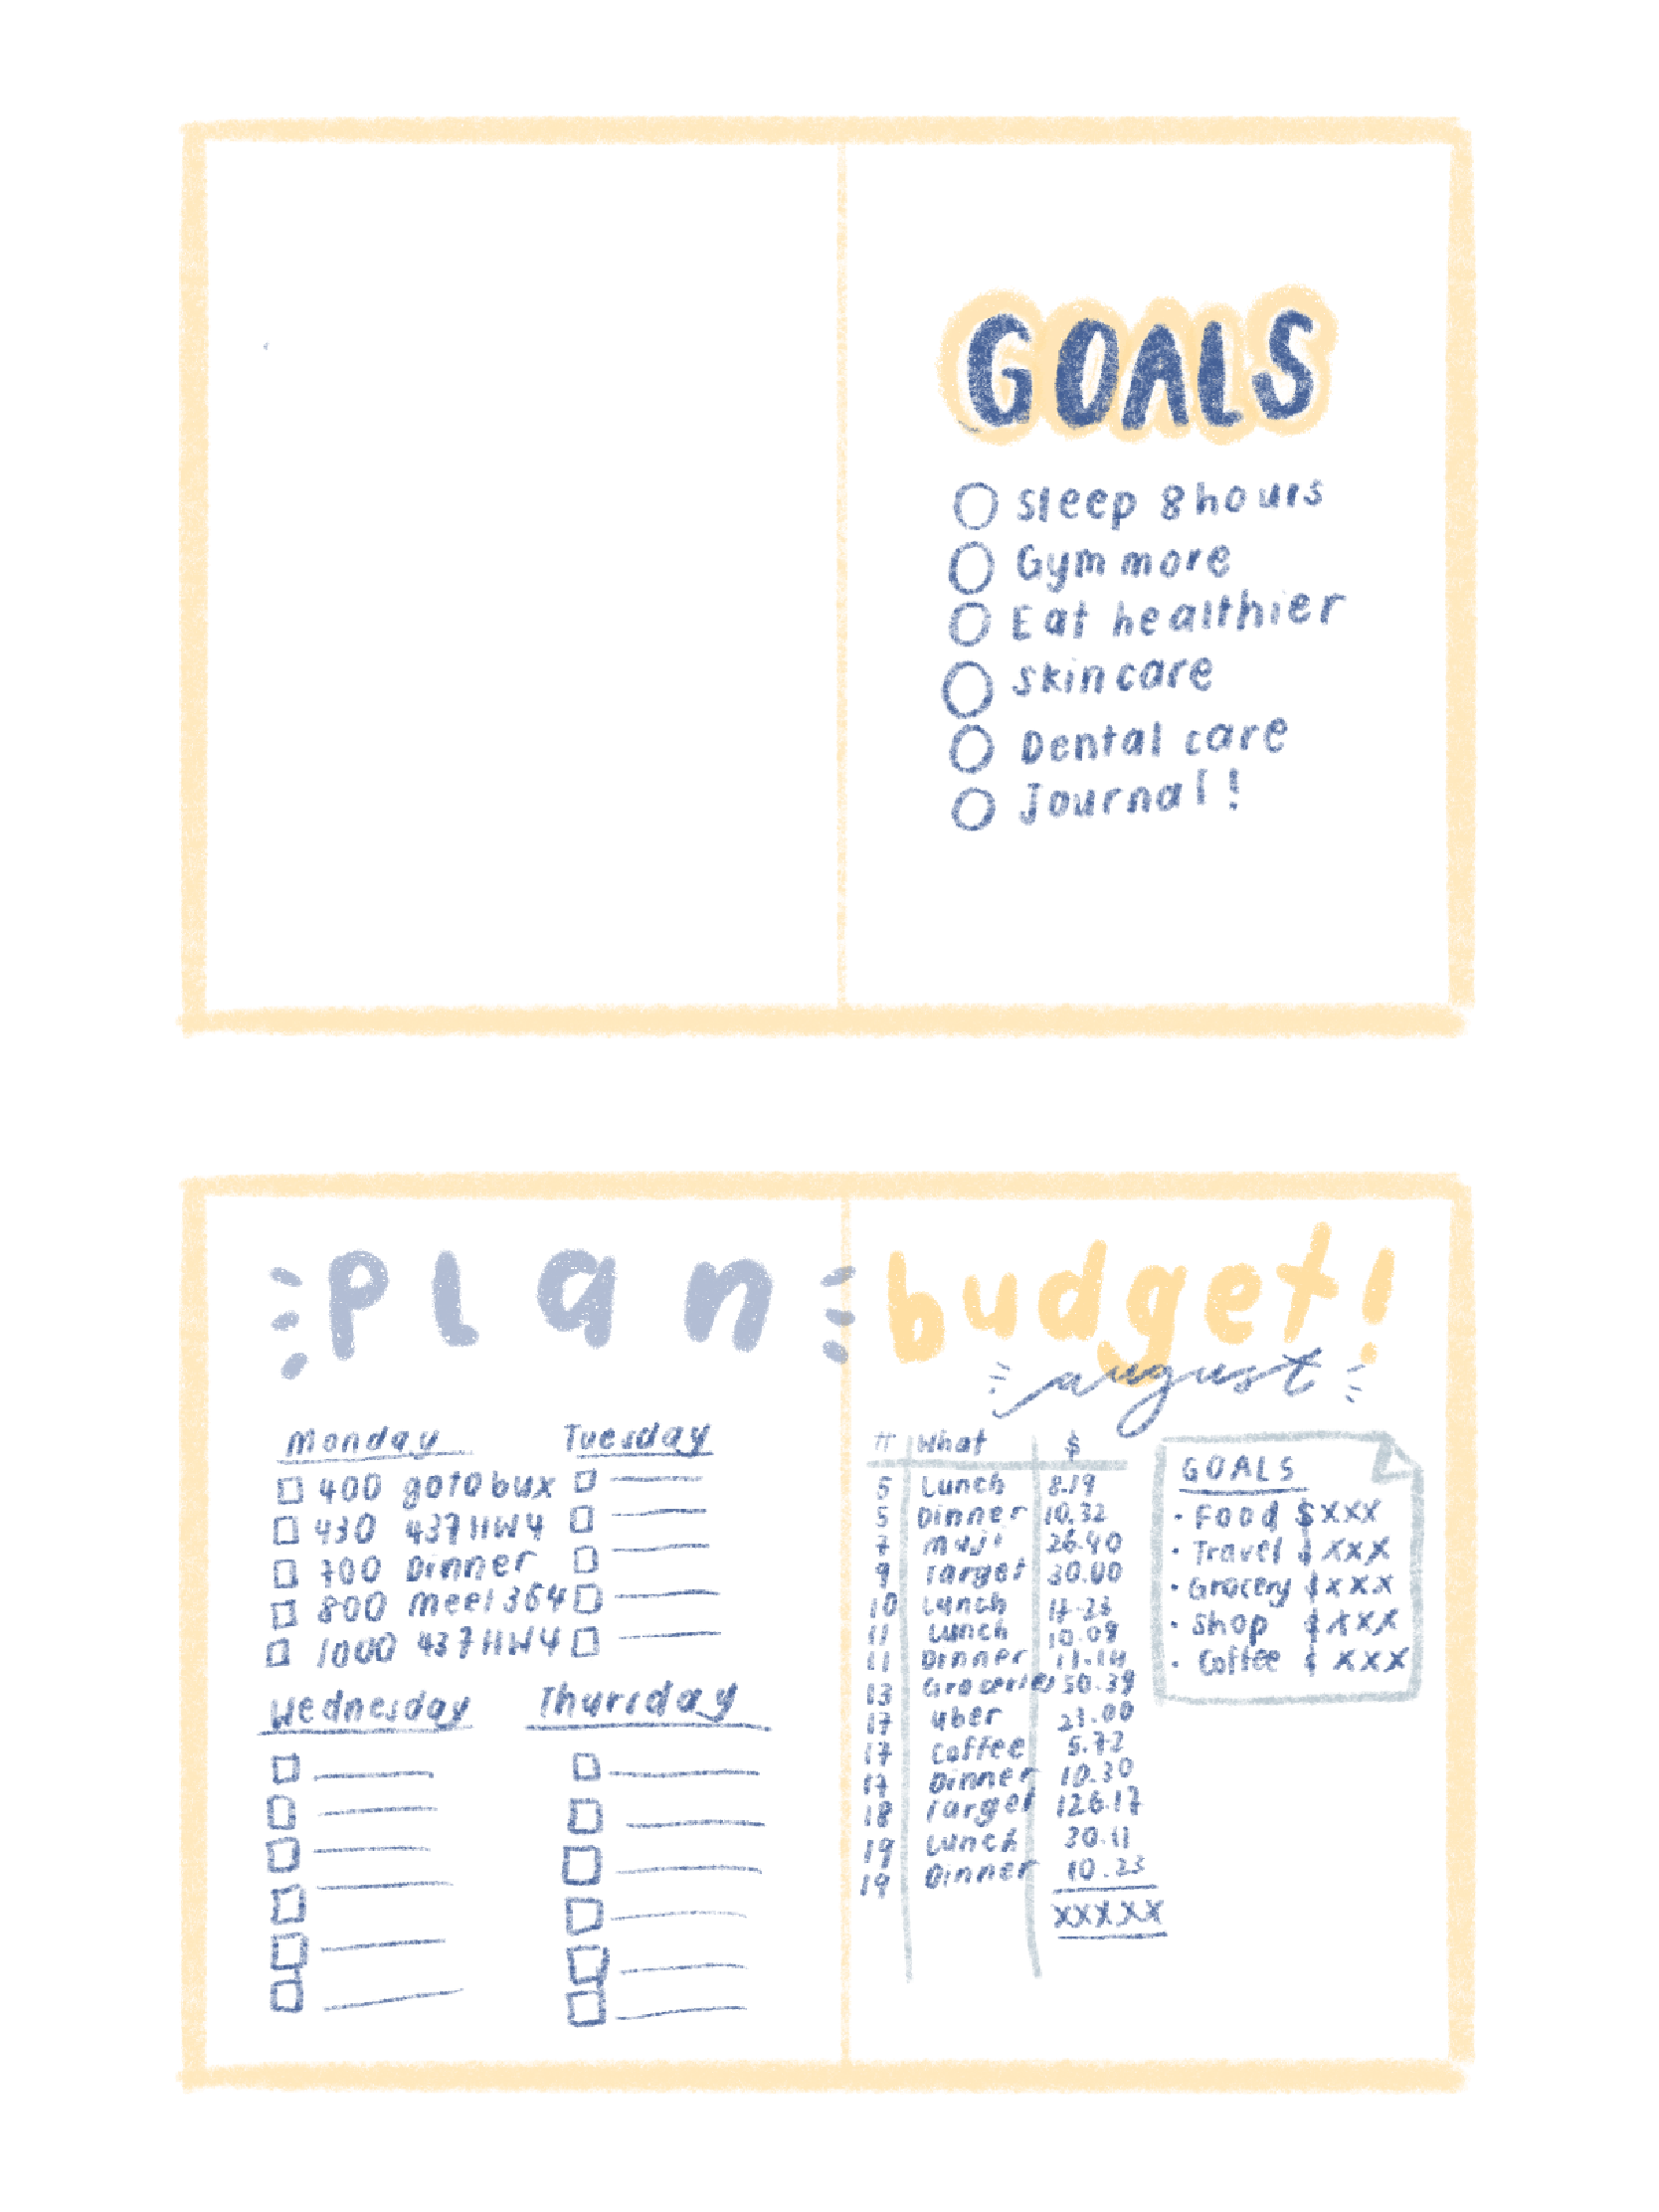 GOALS
Sleep 8 hours
Gym more
Eat healthier
Skincare
Dental care
Journal!
plan
Monday
400 go to bux
430 437 HW4
700 Dinner
800 meet 364
1000 437 HW4
Tuesday
Wednesday
Thursday
budget!
august
# What $
5 Lunch 8.19
5 Dinner 10.32
7 muji 26.40
9 Target 30.00
10 Lunch
11 Lunch 10.09
11 Dinner 11.14
13 Groceries 50.39
17 uber 21.00
17 coffee 5.72
17 Dinner 10.30
18 Target 126.17
19 Lunch 20.11
19 Dinner 10.23
xxxxx
GOALS
• Food $xxx
• Travel $xxx
• Grocery $xxx
• Shop $xxx
• Coffee $xxx